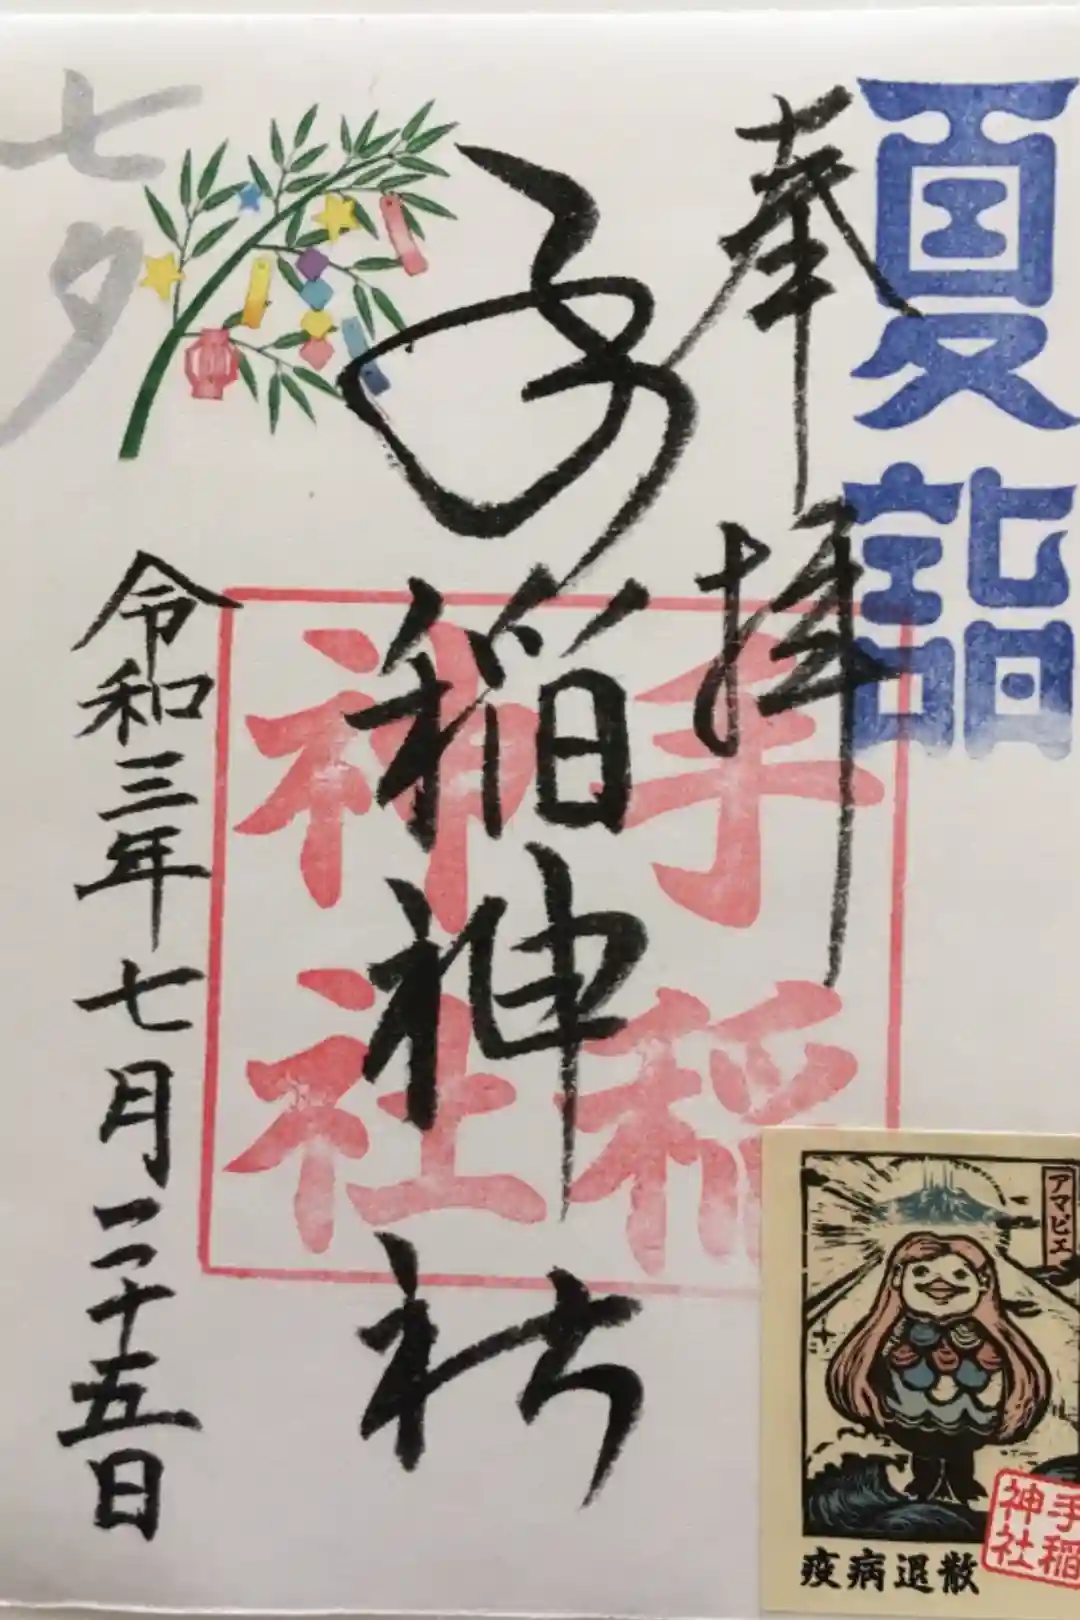 夏詣
奉拝
手稲神社
手稲
神社
七夕
令和三年七月二十五日
アマビエ
疫病退散
手稲
神社